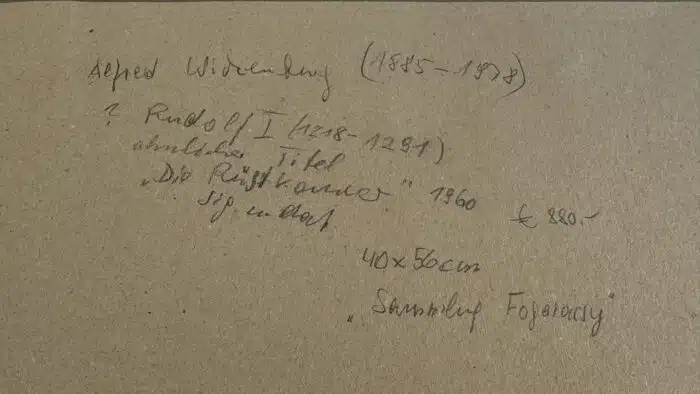 Alfred Wickenburg (1885-1978)
? Rudolf I (1218-1291)
ähnlicher Titel
"Die Rüstkammer" 1960
sig. u. dat.
€ 880.-
40x56cm
"Sammlung Fogarassy"